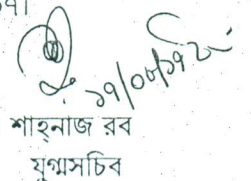 ১৭/০৮/১৭ইং
শাহ্‌নাজ রব
যুগ্মসচিব